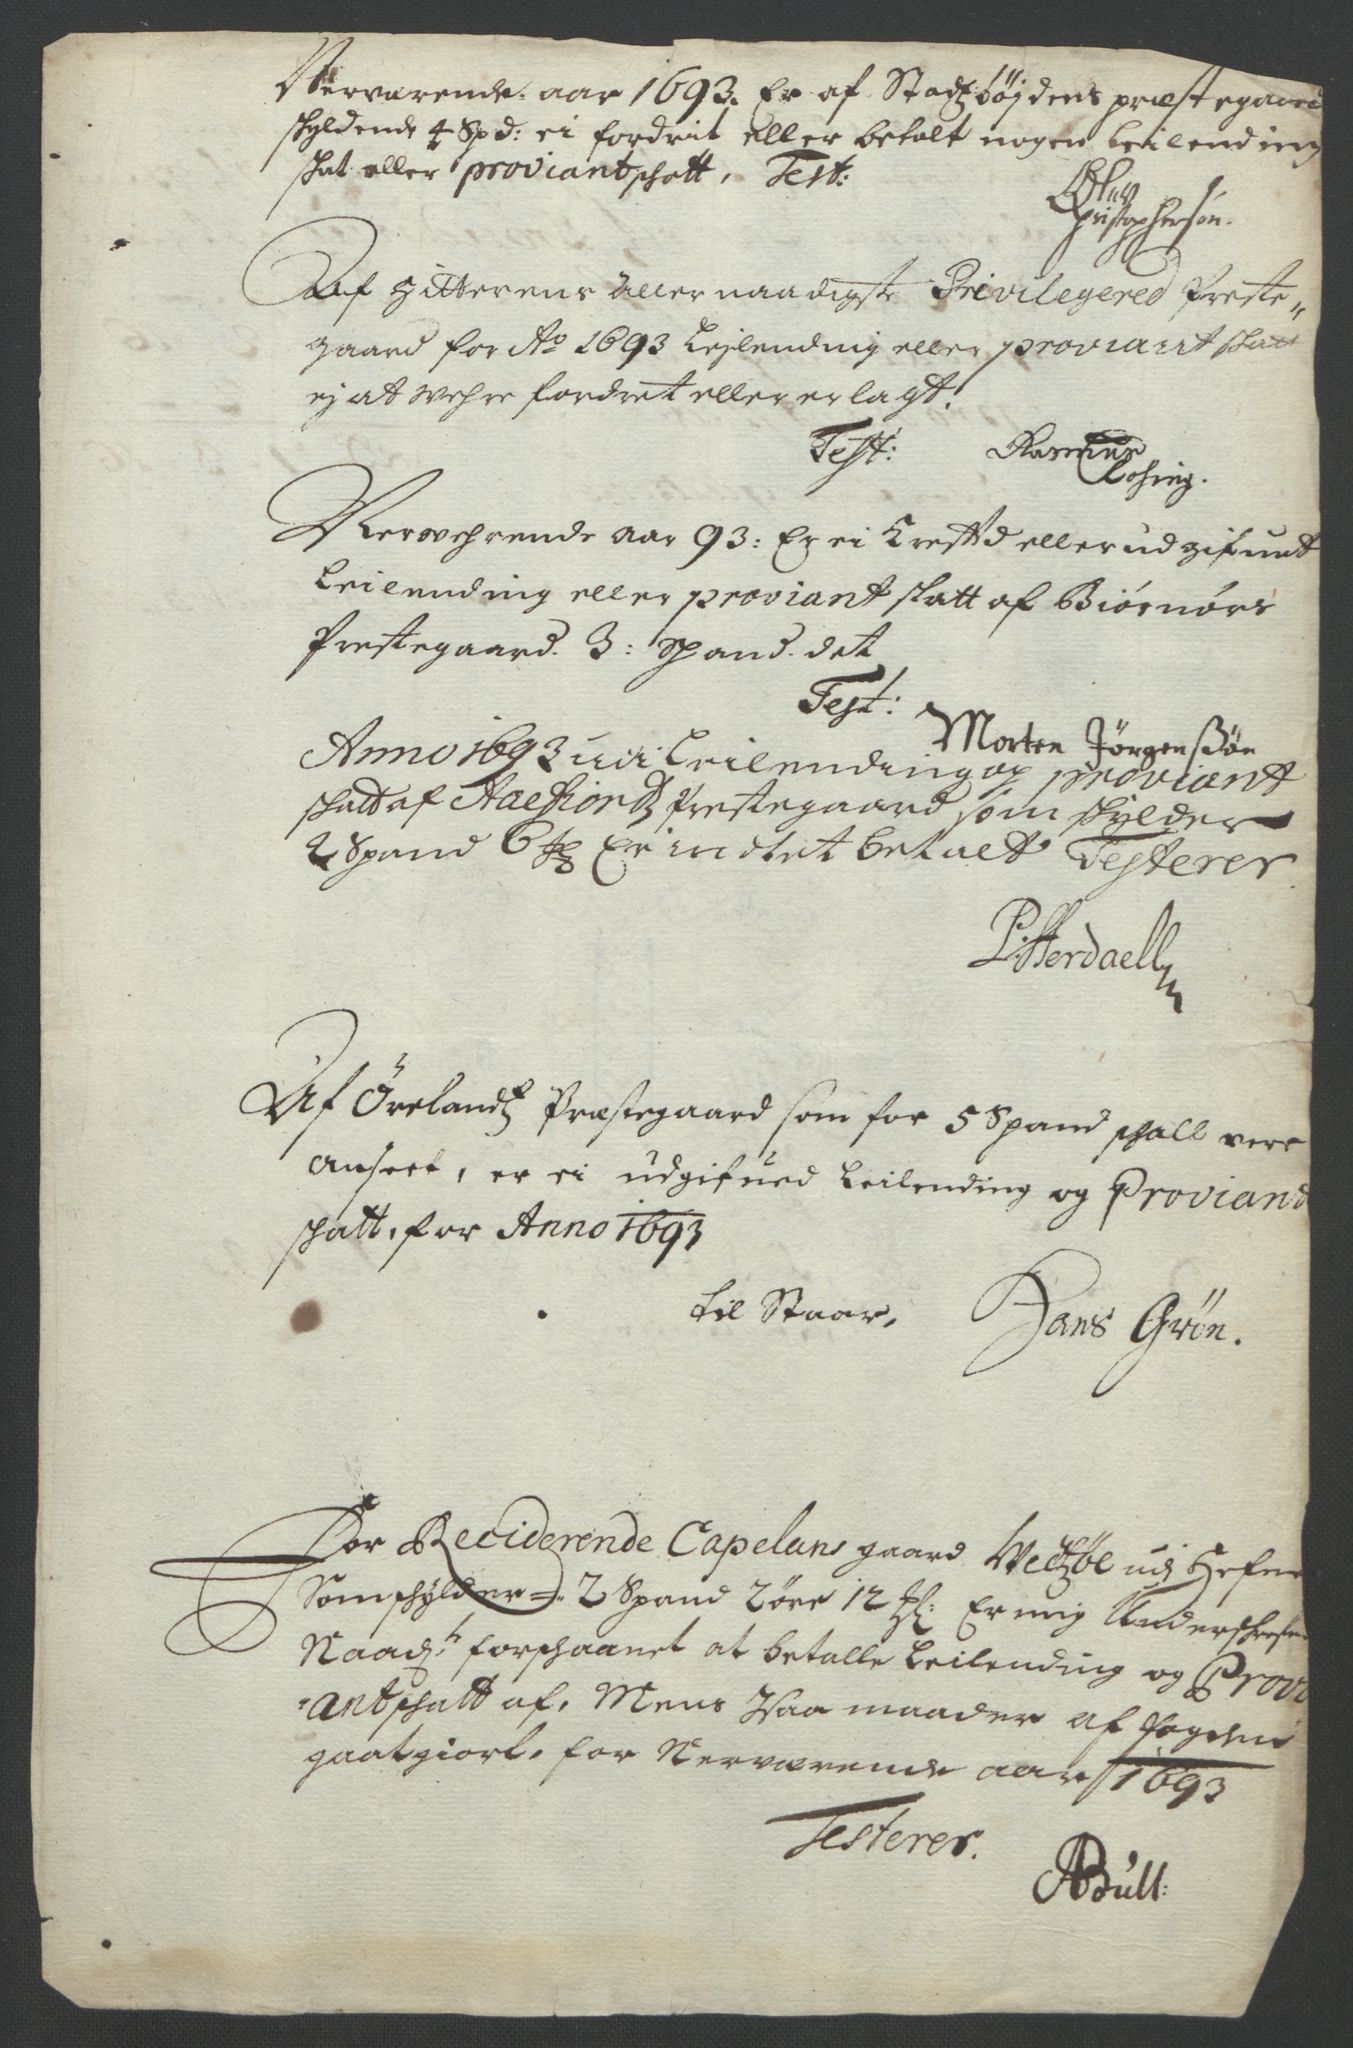 Nerværende aar 1693. Er af Stadtzbøjdens præstegaard
skyldende 4 Spd: ei fordrit eller betalt nogen leilending
skat eller proviantschatt, Test:
Oluf
Christophersøn.
Af Hitterens aller naadigste Privilegered Preste„
gaard for Ao 1693 Lejlending eller proviant skatt
ej at wehre fordret eller erlagt.
Test: Rasmus
Rosing.
Nerwehrende aar 93: Er ei Krefft eller udgifuet
Leilending eller proviant skatt af Biørnørs
Prestegaard 3: Spand. det
Test:
Morten Jörgenßön
Anno 1693 Leilending og proviant
skatt af Aaefiordtz Prestegaard som skylder
2 Spand 6 Er indtet betaelt Testerer
P: Herdaell
Af Örelandtz Præstegaard som for 5 Spand schall vere
anseet, er ei udgifued leilending og Proviand
schatt, for Anno 1693
til Staar. Hans Grön.
For Reciderende Capelans gaard Wedtzøe udj Hefne
Som schylder 2 Spand 2 öre 12 Er mig Underschrefne
Naadt. forschaanet at betalle Leilending og Provi
antschatt af, Mens Saa maader af fogden
gaatgiort, for Nerværende aar 1693
Testerer.
ABüll: